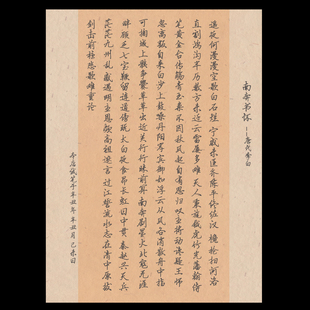 南奔书怀
——唐代李白
遥夜何漫漫空歌白石烂宁戚未匡齐陈平终佐汉欃枪扫河洛
直割鸿沟半历数方未迁云雷屡多难天人秉旄钺虎竹光藩翰侍
笔黄金台传觞青玉案不因秋风起自有思归叹主将动谗疑王师
忽离叛自来白沙上鼓噪丹阳岸宾御如浮云从风各消散舟中指
可掬城上骸争爨草草出近关行行昧前算南奔剧星火北寇无涯
畔顾乏七宝鞭留连道傍玩太白夜食昴长虹日中贯秦赵兴天兵
茫茫九州乱感遇明主恩颇高祖逖言过江誓流水志在清中原拔
剑击前柱悲歌难重论
试笔于辛丑年辛丑月己未日